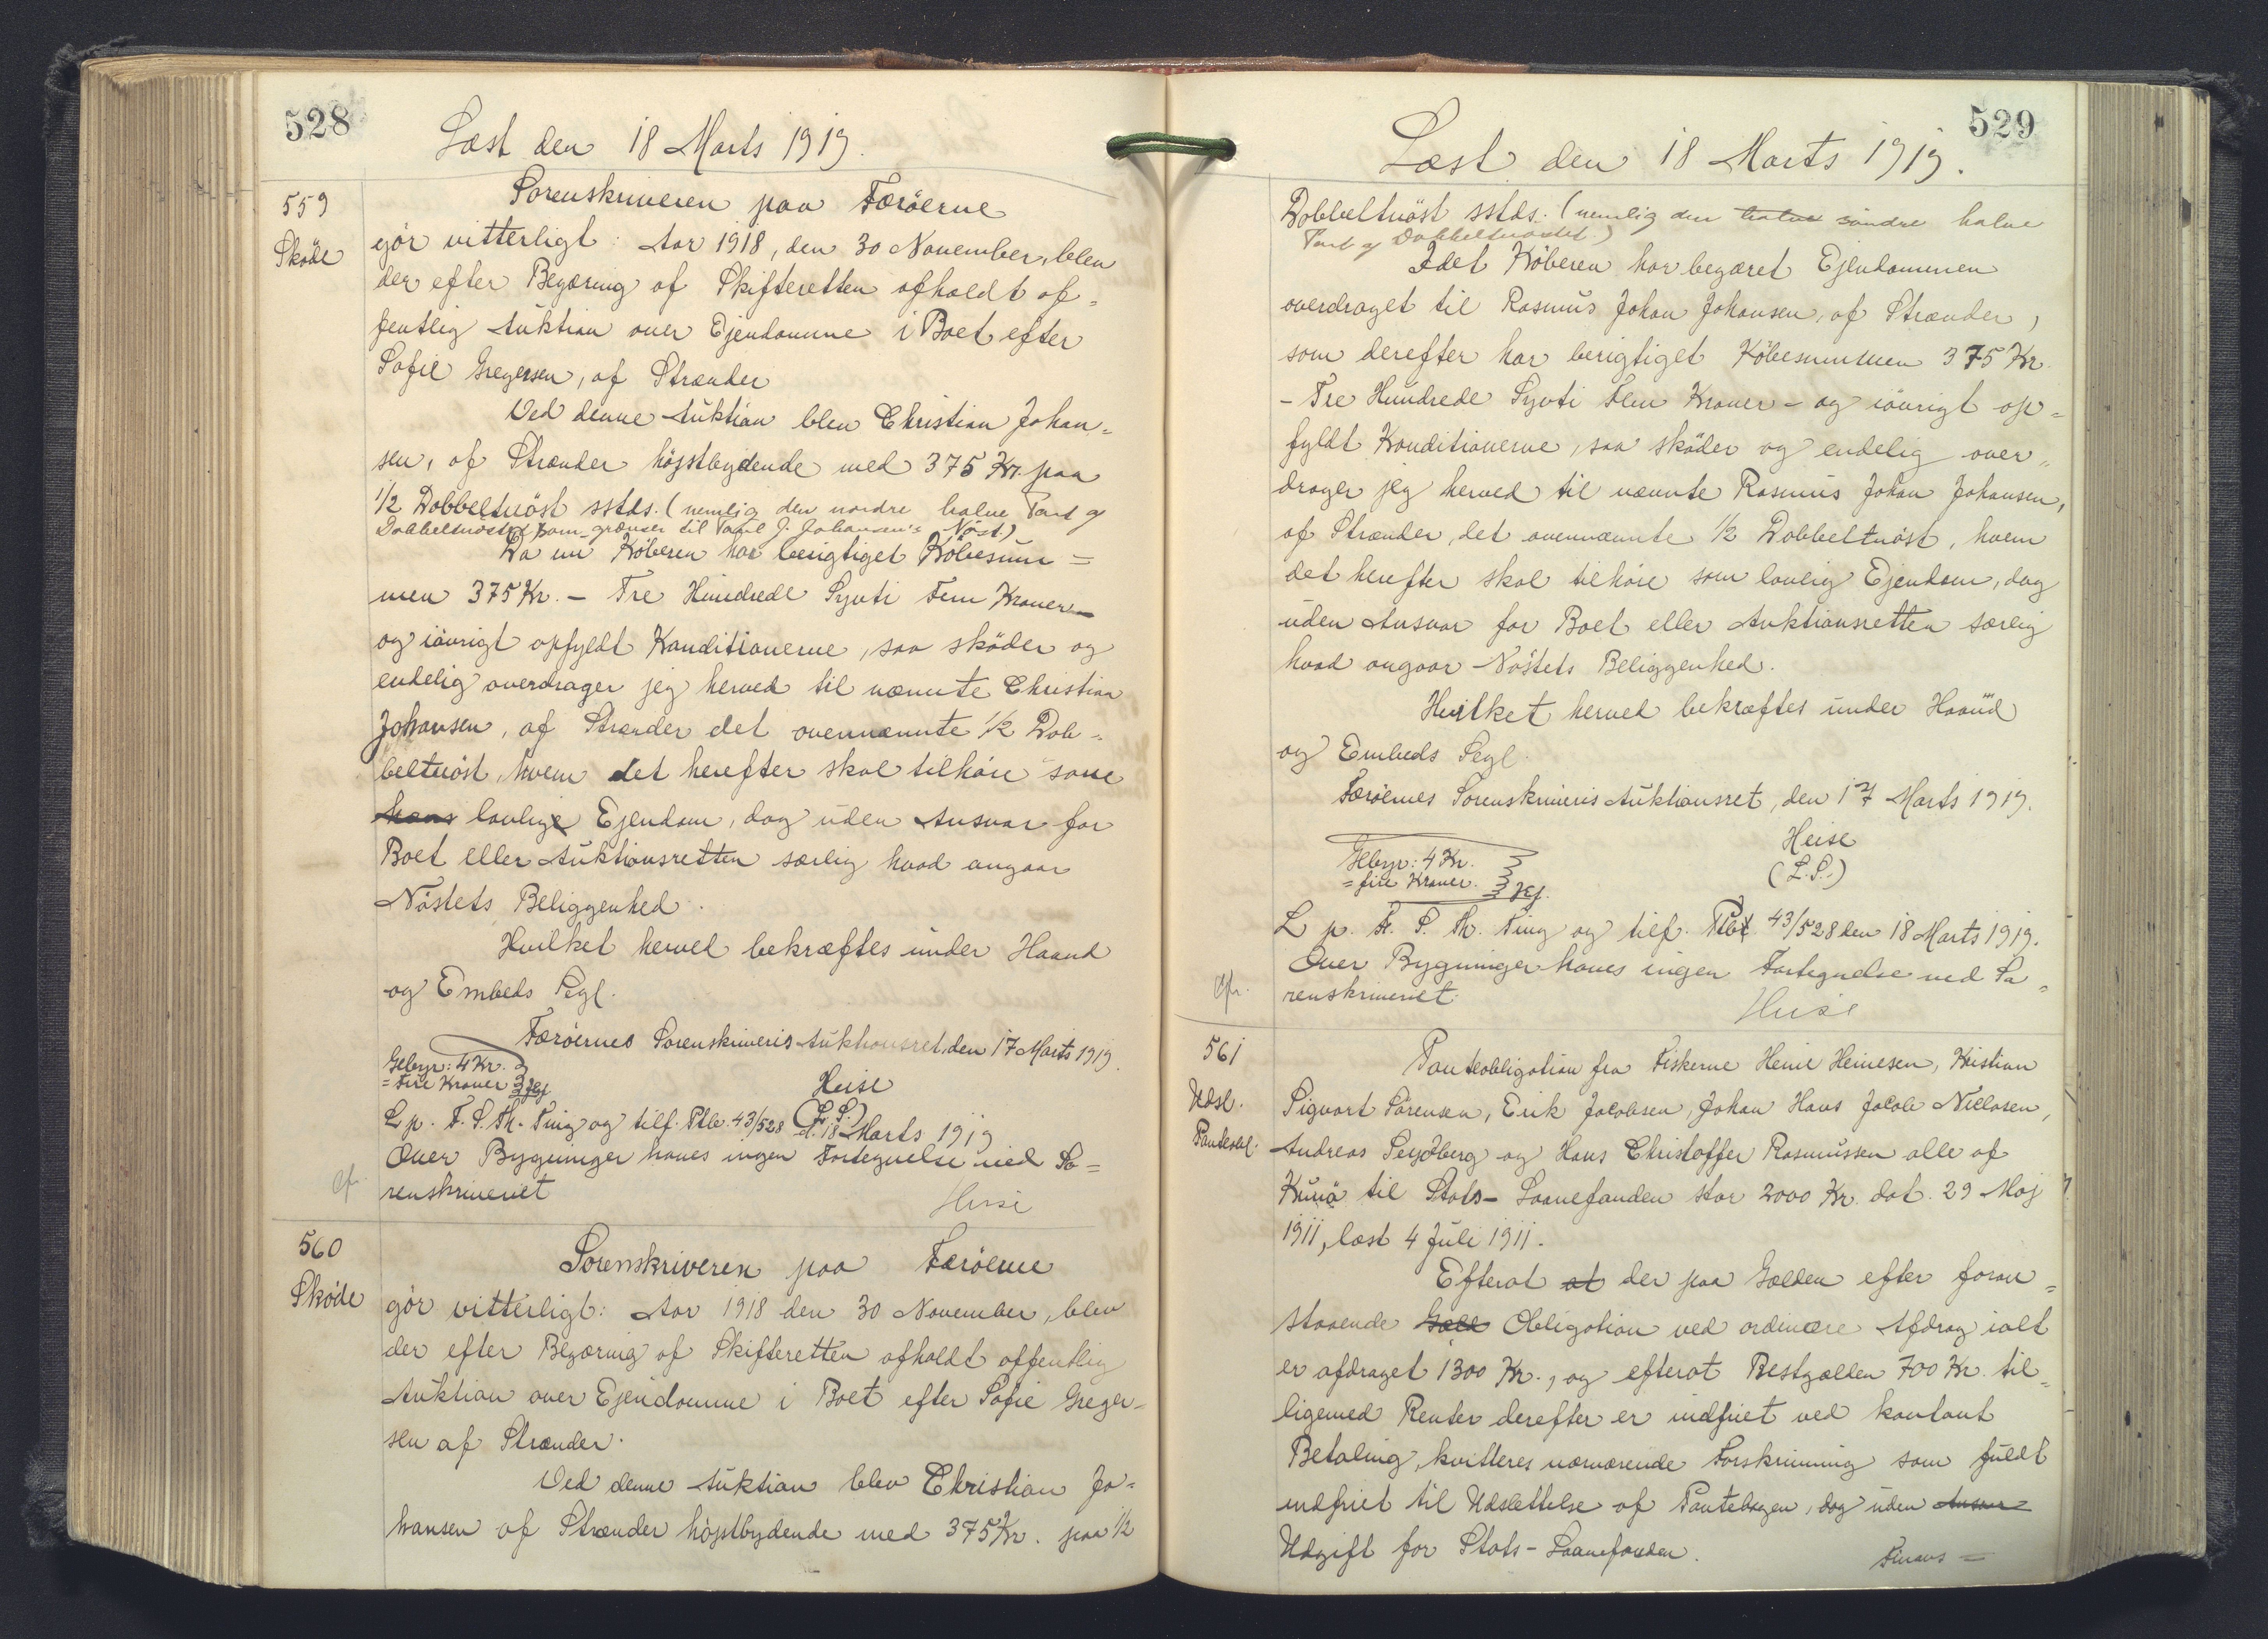 528
Læst den 18 Marts 1919.
559
Sköde
Sorenskriveren paa Færöerne
gör vitterligt: Aar 1918, den 30 November, blev
der efter Begæring af Skifteretten afholdt of=
fentlig Auktion over Ejendomme i Boet efter
Sofie Gregersen, af Strænder
Ved denne Auktion blev Christian Johan=
sen, af Strænder höjstbydende med 375 Kr. paa
1/2 Dobbeltnöst sstds. (nemlig den nordre halve Part af
Dobbeltnöstet som grænser til Poul J. Johansen's Nöst.)
Da nu Köberen har berigtiget Köbesum=
men 375 Kr. - Tre Hundrede Syvti Fem Kroner -
og iövrigt opfyldt Konditionerne, saa sköder og
endelig overdrager jeg herved til nævnte Christian
Johansen, af Strænder det ovennævnte 1/2 Dob=
beltnöst, hvem det herefter skal tilhöre som
hans lovlige Ejendom, dog uden Ansvar for
Boet eller Auktionsretten særlig hvad angaar
Nöstets Beliggenhed.
Hvilket herved bekræftes under Haand
og Embeds Segl.
Færöernes Sorenskriveris Auktionsret, den 17 Marts 1919.
Gebyr: 4 Kr.
= Fire Kroner
Heise
(L.S.)
L p. F. S. Th. Ting og tilf. Ptb. 43/528 d. 18 Marts 1919
Over Bygninger haves ingen Fortegnelse ved So=
cfr.
renskriveriet
Heise
560
Sköde
Sorenskriveren paa Færöerne
gör vitterligt: Aar 1918 den 30 November, blev
der efter Begæring af Skifteretten afholdt offentlig
Auktion over Ejendomme i Boet efter Sofie Greger=
sen af Strænder.
Ved denne Auktion blev Christian Jo=
hansen af Strænder höjstbydende med 375 Kr. paa 1/2
529
Læst den 18 Marts 1919.
Dobbeltnöst sstds. (nemlig den halve söndre halve
Part af Dobbeltnöstet.)
Idet Köberen har begæret Ejendommen
overdraget til Rasmus Johan Johansen, af Strænder,
som derefter har berigtiget Köbesummen 375 Kr.
- Tre Hundrede Syvti Fem Kroner - og iövrigt op=
fyldt Konditionerne, saa sköder og endelig over=
drager jeg herved til nævnte Rasmus Johan Johansen,
af Strænder, det ovennævnte 1/2 Dobbeltnöst, hvem
det herefter skal tilhöre som lovlig Ejendom, dog
uden Ansvar for Boet eller Auktionsretten særlig
hvad angaar Nöstets Beliggenhed.
Hvilket herved bekræftes under Haand
og Embeds Segl.
Færöernes Sorenskriveris Auktionsret, den 17 Marts 1919.
Heise
(L.S.)
Gebyr: 4 Kr.
= fire Kroner.
L p. F. S. Th. Ting og tilf. Ptb. 43/528 den 18 Marts 1919.
Over Bygninger haves ingen Fortegnelse ved So=
cfr.
renskriveriet.
Heise
561
Udsl.
Panteobl.
Panteobligation fra Fiskerne Heine Heinesen, Kristian
Sigvart Sörensen, Erik Jacobsen, Johan Hans Jacob Niclasen,
Andreas Seydberg og Hans Christoffer Rasmussen alle af
Kunö til Stats-Laanefonden stor 2000 Kr. dat. 29 Maj
1911, læst 4 Juli 1911.
Efterat at der paa Gælden efter foran=
staaende Gæld Obligation ved ordinære Afdrag ialt
er afdraget 1300 Kr., og efterat Restgælden 700 Kr. til=
ligemed Renter derefter er indfriet ved kontant
Betaling, kvitteres nærværende Forskrivning som fuldt
indfriet til Udslettelse af Pantebogen, dog uden Ansvar
Udgift for Stats-Laanefonden.
Finans=